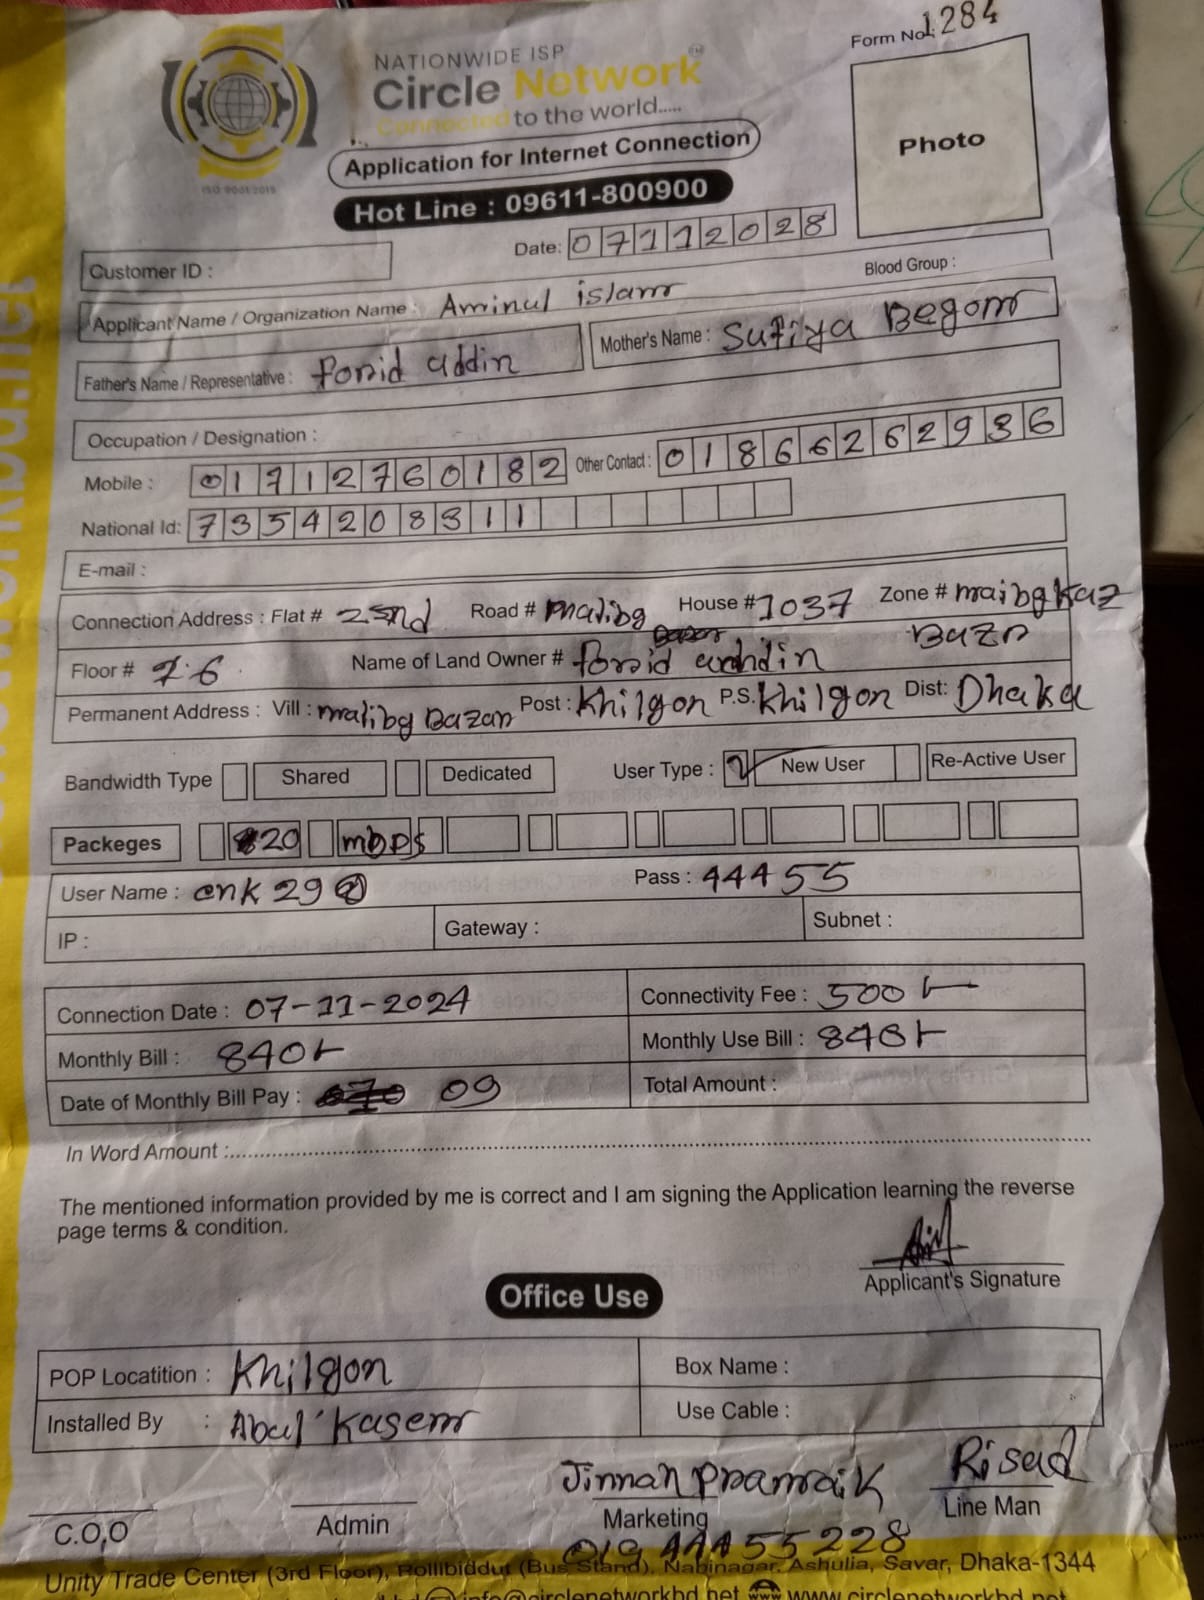 Form No. 1284
NATIONWIDE ISP
Circle Network
Connected to the world.....
ISO 9001:2015
Application for Internet Connection
Photo
Hot Line : 09611-800900
Date: 07112028
Customer ID :
Blood Group :
Applicant Name / Organization Name : Aminul islam
Father's Name / Representative : Forid uddin Mother's Name : Sufiya Begom
Occupation / Designation :
Mobile : 01712760182 Other Contact : 01866262936
National Id: 7354208311
E-mail :
Connection Address : Flat # 2nd Road # malibg House # 1037 Zone # maibg kaz
Bazar
Floor # 7.6 Name of Land Owner # Forid uddin
Permanent Address : Vill : malibg Bazar Post : Khilgon P.S. Khilgon Dist: Dhaka
Bandwidth Type Shared Dedicated User Type : New User Re-Active User
Packeges 20 mbps
User Name : cnk 29 Pass : 44455
IP : Gateway : Subnet :
Connection Date : 07-11-2024 Connectivity Fee : 500/-
Monthly Bill : 840/- Monthly Use Bill : 840/-
Date of Monthly Bill Pay : 09 Total Amount :
In Word Amount :
The mentioned information provided by me is correct and I am signing the Application learning the reverse
page terms & condition.
Applicant's Signature
Office Use
POP Locatition : Khilgon Box Name :
Installed By : Abul Kasem Use Cable :
Jinnah Pramaik Risad
C.O,O Admin Marketing Line Man
01944455228
Unity Trade Center (3rd Floor), Pollibiddut (Bus Stand), Nabinagar, Ashulia, Savar, Dhaka-1344
info@circlenetworkbd.net www.circlenetworkbd.net